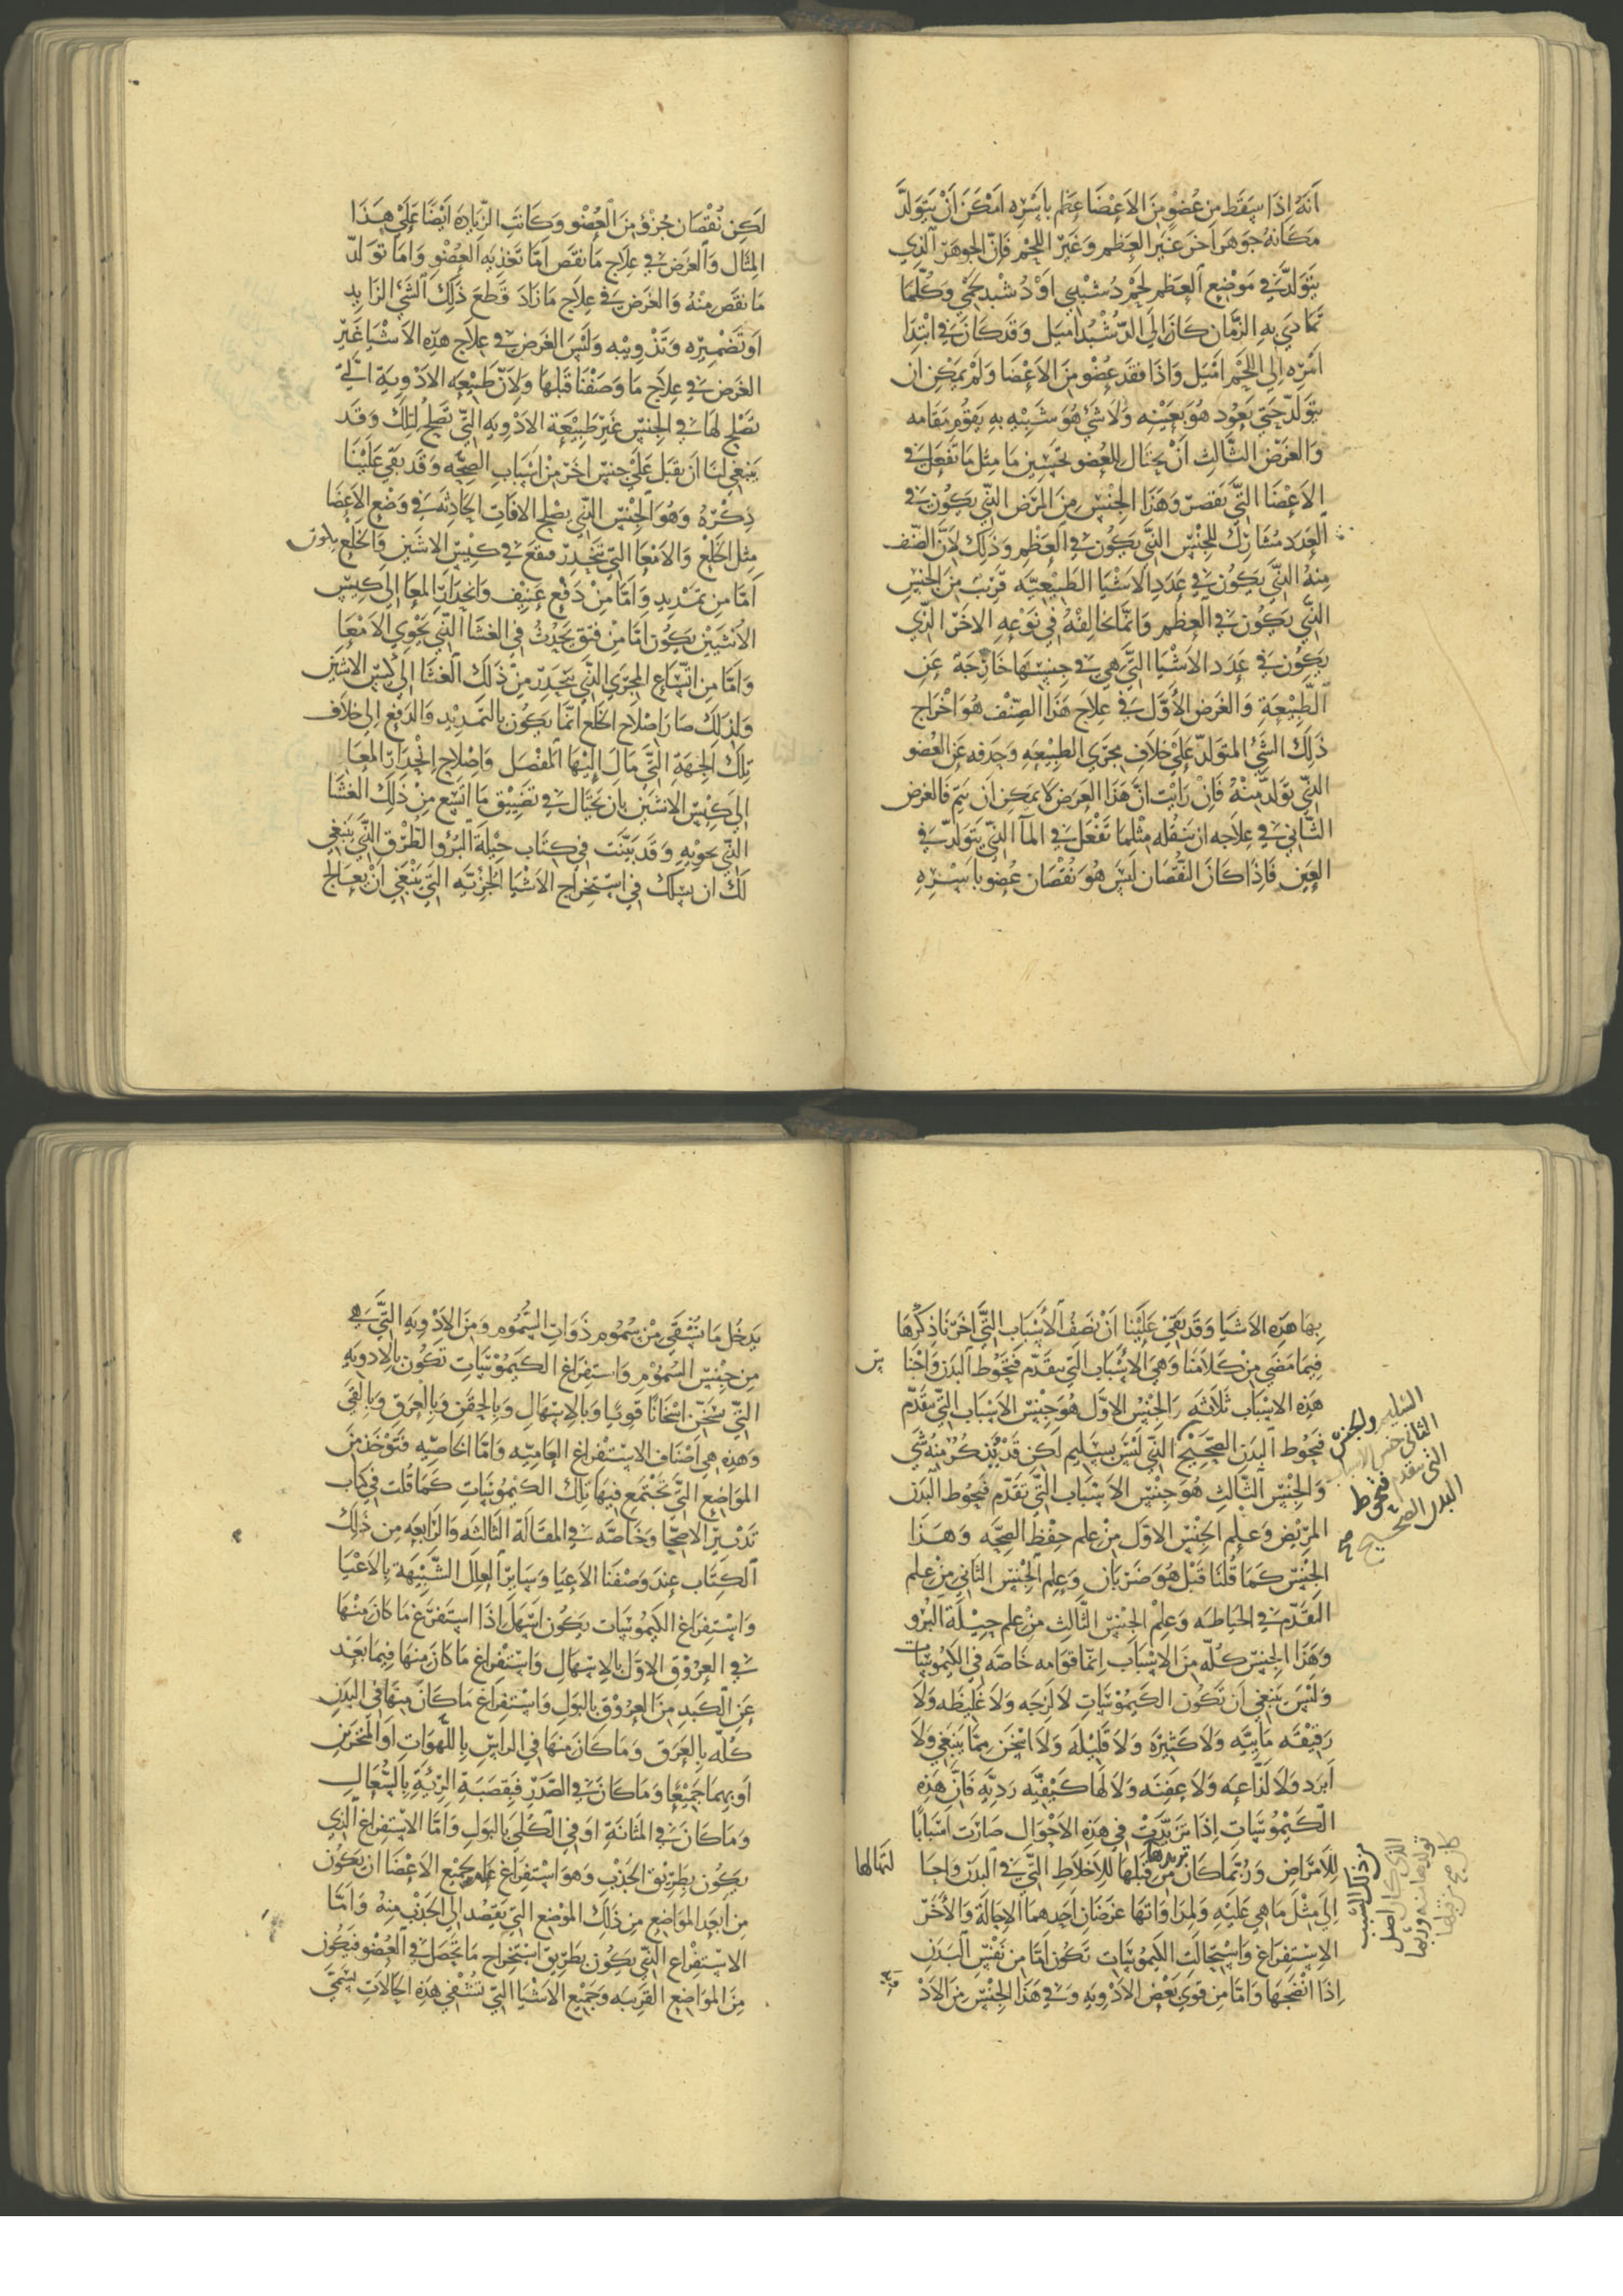 أنه إذا سقط من عضو من الاعضا عظم بأسره امكن أن يتولد
مكانه جوهر آخر غير العظم وغير اللحم فإن الجوهر الذي
يتولد في موضع العظم لحم دشبذي او دشبد لحمي وكلما
تمادى به الزمان كان إلى الدشبد اميل وقد كان في ابتدا
امره الى اللحم اميل واذا فقد عضو من الاعضا ولم يمكن ان
يتولد حتى يعود هو بعينه ولا شي هو شبيه به يقوم مقامه
والغرض الثالث أن يحتال للعضو بتحسين ما مثل ما تفعل في
الاعضا التي تقصر وهذا الجنس من المرض الذي يكون في
العدد مشارك للجنس الذي يكون في العظم وذلك لأن الصنف
منه الذي يكون في عدد الاشيا الطبيعيه قريب من الجنس
الذي يكون في العظم وانما يخالفه في نوعه الاخر الذي
يكون في عدد الاشيا التي هي في جنسها خارجة عن
الطبيعة والغرض الاول في علاج هذا الصنف هو اخراج
ذلك الشي المتولد على خلاف مجرى الطبيعه وحذفه عن العضو
الذي تولد منه فان رايت ان هذا الغرض لا يمكن ان يتم فالغرض
الثاني في علاجه ان تنقله مثلما تفعل في المآ الذي يتولد في
العين فاذا كان النقصان ليس هو نقصان عضو باسره
لكن نقصان جزؤ من العضو وكانت الزيادة أيضا على هذا
المثال والغرض في علاج ما نقص اما تغذيه العضو واما تولد
ما نقص منه والغرض في علاج ما زاد قطع ذلك الشي الزايد
او تضميره وتذويبه وليس الغرض في علاج هذه الاشيا غير
الغرض في علاج ما وصفنا قبلها ولان طبيعه الادوية التي
تصلح لها في الجنس غير طبيعة الادويه التي تصلح لتلك وقد
ينبغي لنا أن نقبل على جنس آخر من أسباب الصحه وقد بقي علينا
ذكره وهو الجنس الذي يصلح الافات الحادثه في وضع الاعضا
مثل الخلع والامعا التي تنحدر فتقع في كيس الانثيين والخلع يكون
أما من تمديد واما من دفع عنيف وانحدار المعا الى كيس
الانثيين يكون اما من فتق يحدث في الغشا الذي يحوي الامعا
وأما من اتساع المجرى الذي ينحدر من ذلك الغشا الى كيس الانثيين
ولذلك صار اصلاح الخلع انما يكون بالتمديد والدفع الى خلاف
تلك الجهة التي مال إليها المفصل وإصلاح انحدار المعا
الى كيس الانثيين بان تحتال في تضييق ما اتسع من ذلك الغشا
الذي يحويه وقد بينت في كتاب حيلة البرؤ الطرق التي ينبغي
لك ان تسلك في استخراج الاشيا الجزئيه التي ينبغي أن يعالج
بها هذه الاشيا وقد بقي علينا أن نصف الأسباب التي أخرنا ذكرها
فيما مضى من كلامنا وهي الأسباب التي تتقدم فتحوط البدن واجنا
س
هذه الاسباب ثلاثه والجنس الاول هو جنس الاسباب التي تتقدم
فتحوط البدن الصحيح الذي ليس بسليم لكن قد يذكر منه شي
السليم والجنس
الثاني جنس الاسباب
التي تتقدم فتحوط
البدن الصحيح صح
والجنس الثالث هو جنس الاسباب التي تتقدم فتحوط البدن
المريض وعلم الجنس الاول من علم حفظ الصحه وهذا
الجنس كما قلنا قبل هو ضربان وعلم الجنس الثاني من علم
التقدم في الحياطه وعلم الجنس الثالث من علم حيلة البرو
وهذا الجنس كله من الاسباب إنما قوامه خاصه في الكيموسات
وليس ينبغي ان تكون الكيموسات لا لزجه ولا غليظه ولا
رقيقه مائيه ولا كثيره ولا قليله ولا اسخن مما ينبغي ولا
أبرد ولا لذاعه ولا عفنه ولا لها كيفيه رديه فان هذه
الكيموسات إذا تزيدت في هذه الاحوال صارت أسبابا
للأمراض وربما كان تزيدها من قبلها للاخلاط التي في البدن واحبا
لتمالها
من ذلك السبب
الذي كان اصل
تولدها منه وربما
كان صح من قبلها
إلى مثل ما هي عليه ولمداواتها غرضان أحدهما الاحالة والاخر
الاستفراغ واستحالت الكيموسات تكون اما من نفس البدن
إذا أنضجها واما من قوى بعض الادويه وفي هذا الجنس من الاد
يدخل ما يسقى من سموم ذوات السموم ومن الادويه التي هي
من جنس السموم واستفراغ الكيموسات تكون بالادويه
التي تسخن اسخانا قويا وبالاسهال وبالحقن وبالعرق وبالقي
وهذه هي اصناف الاستفراغ العاميه واما الخاصيه فتوخذ من
المواضع التي تجتمع فيها تلك الكيموسات كما قلت في كتاب
تدبير الاصحا وخاصه في المقالة الثالثه والرابعه من ذلك
الكتاب عند وصفنا الاعيا وساير العلل الشبيهة بالاعيا
واستفراغ الكيموسات يكون اسهل اذا استفرغ ما كان منها
في العروق الاول بالاسهال واستفراغ ما كان منها فيما بعد
عن الكبد من العروق بالبول واستفراغ ما كان منها في البدن
كله بالعرق وما كان منها في الراس باللهوات او المنخرين
او بهما جميعا وما كان في الصدر فبقصبة الرئة بالسعال
وما كان في المثانة او في الكلى بالبول واما الاستفراغ الذي
يكون بطريق الجذب وهو استفراغ عام لجميع الاعضا ان يكون
من ابعد المواضع من ذلك الموضع الذي يقصد الى الجذب منه واما
الاستفراغ الذي يكون بطريق استخراج ما تحصل في العضو فيكون
من المواضع القريبه وجميع الاشيا التي تشفي هذه الحالات يسمى